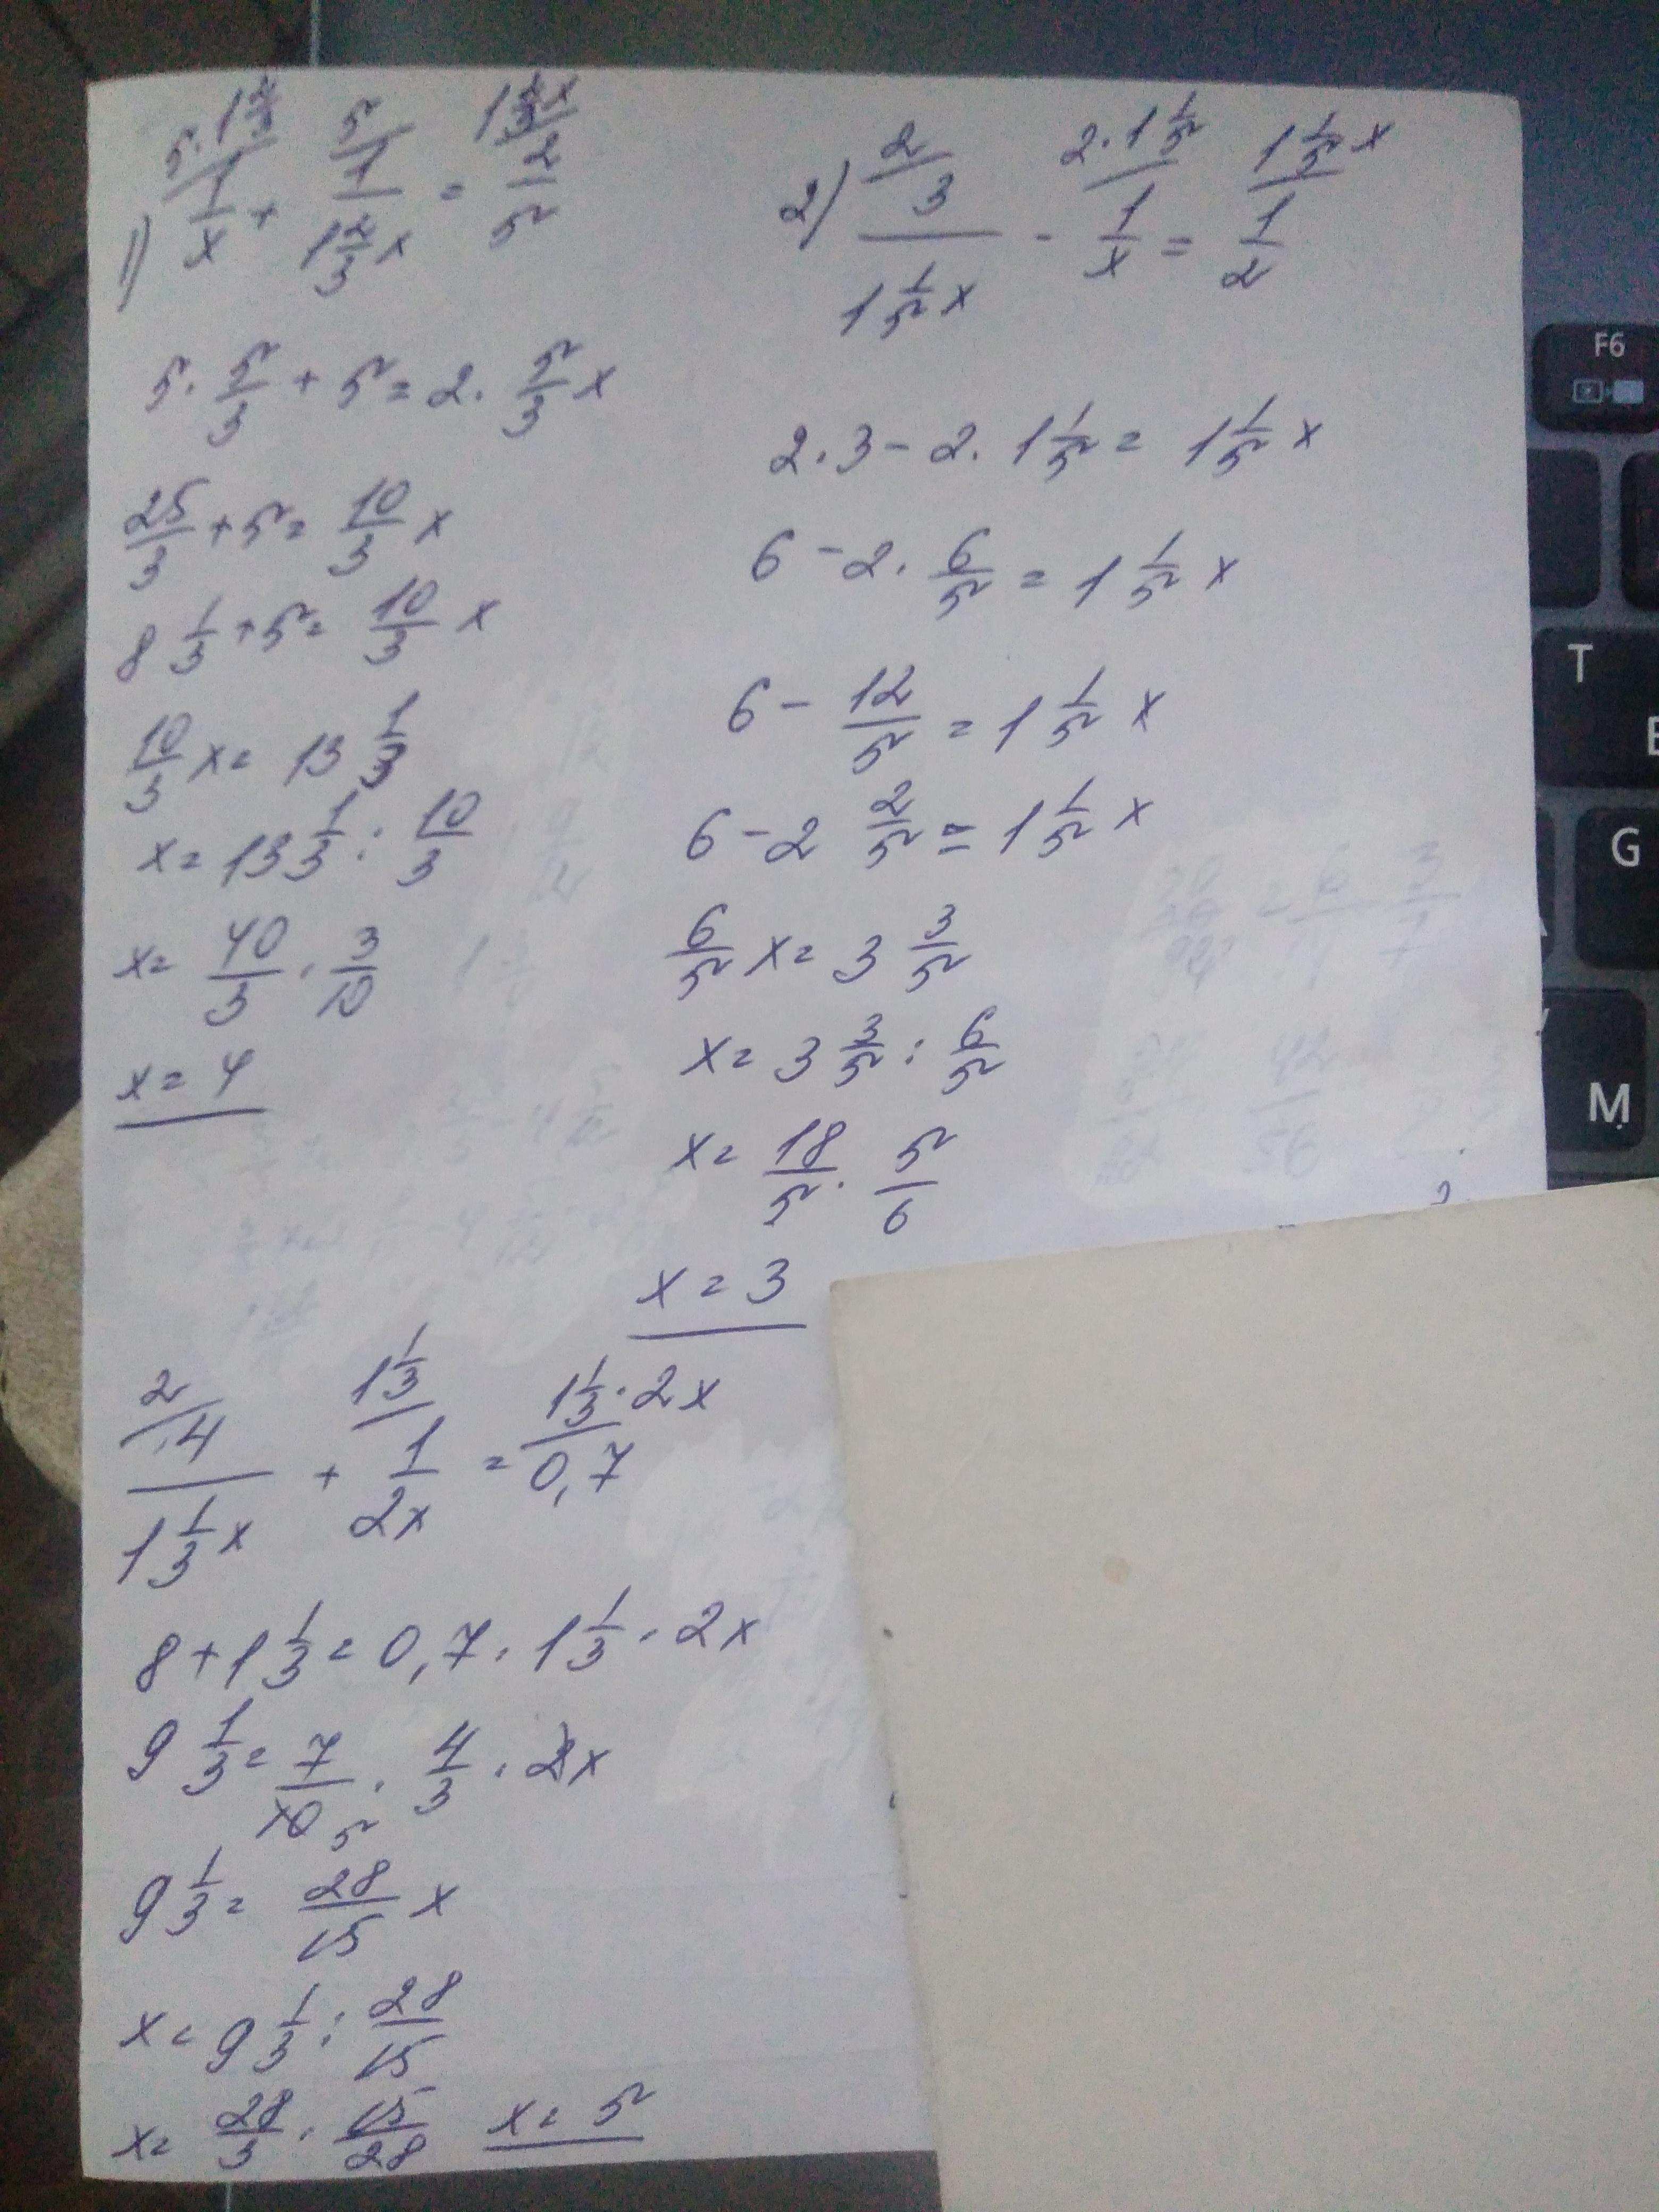 1) 5·1 2/3 / 1/x + 5/ 1/(1 2/3 x) = 1 2/3 x / 2/5
5 · 5/3 + 5 = 2 · 5/3 x
25/3 + 5 = 10/3 x
8 1/3 + 5 = 10/3 x
10/3 x = 13 1/3
x = 13 1/3 : 10/3
x = 40/3 · 3/10
x = 4
2) 2/ 3/(1 1/5 x) - 2·1 1/5 / 1/x = 1 1/5 x / 1/2
2 · 3 - 2 · 1 1/5 = 1 1/5 x
6 - 2 · 6/5 = 1 1/5 x
6 - 12/5 = 1 1/5 x
6 - 2 2/5 = 1 1/5 x
6/5 x = 3 3/5
x = 3 3/5 : 6/5
x = 18/5 · 5/6
x = 3
2/ 4/(1 1/3 x) + 1 1/3 / 1/(2x) = 1 1/3 · 2x / 0,7
8 + 1 1/3 = 0,7 · 1 1/3 · 2x
9 1/3 = 7/10 5 · 4/3 · 2x
9 1/3 = 28/15 x
x = 9 1/3 : 28/15
x = 28/3 · 15/28 x = 5
F6
T
G
M